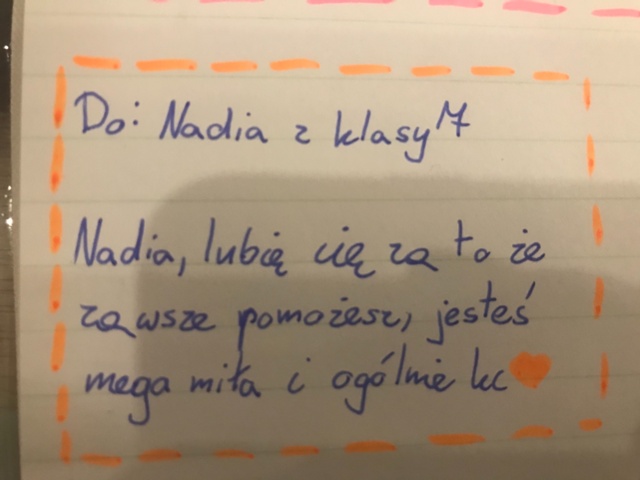 Do: Nadia z klasy 7
Nadia, lubię cię za to że
zawsze pomożesz, jesteś
mega miła i ogólnie kc